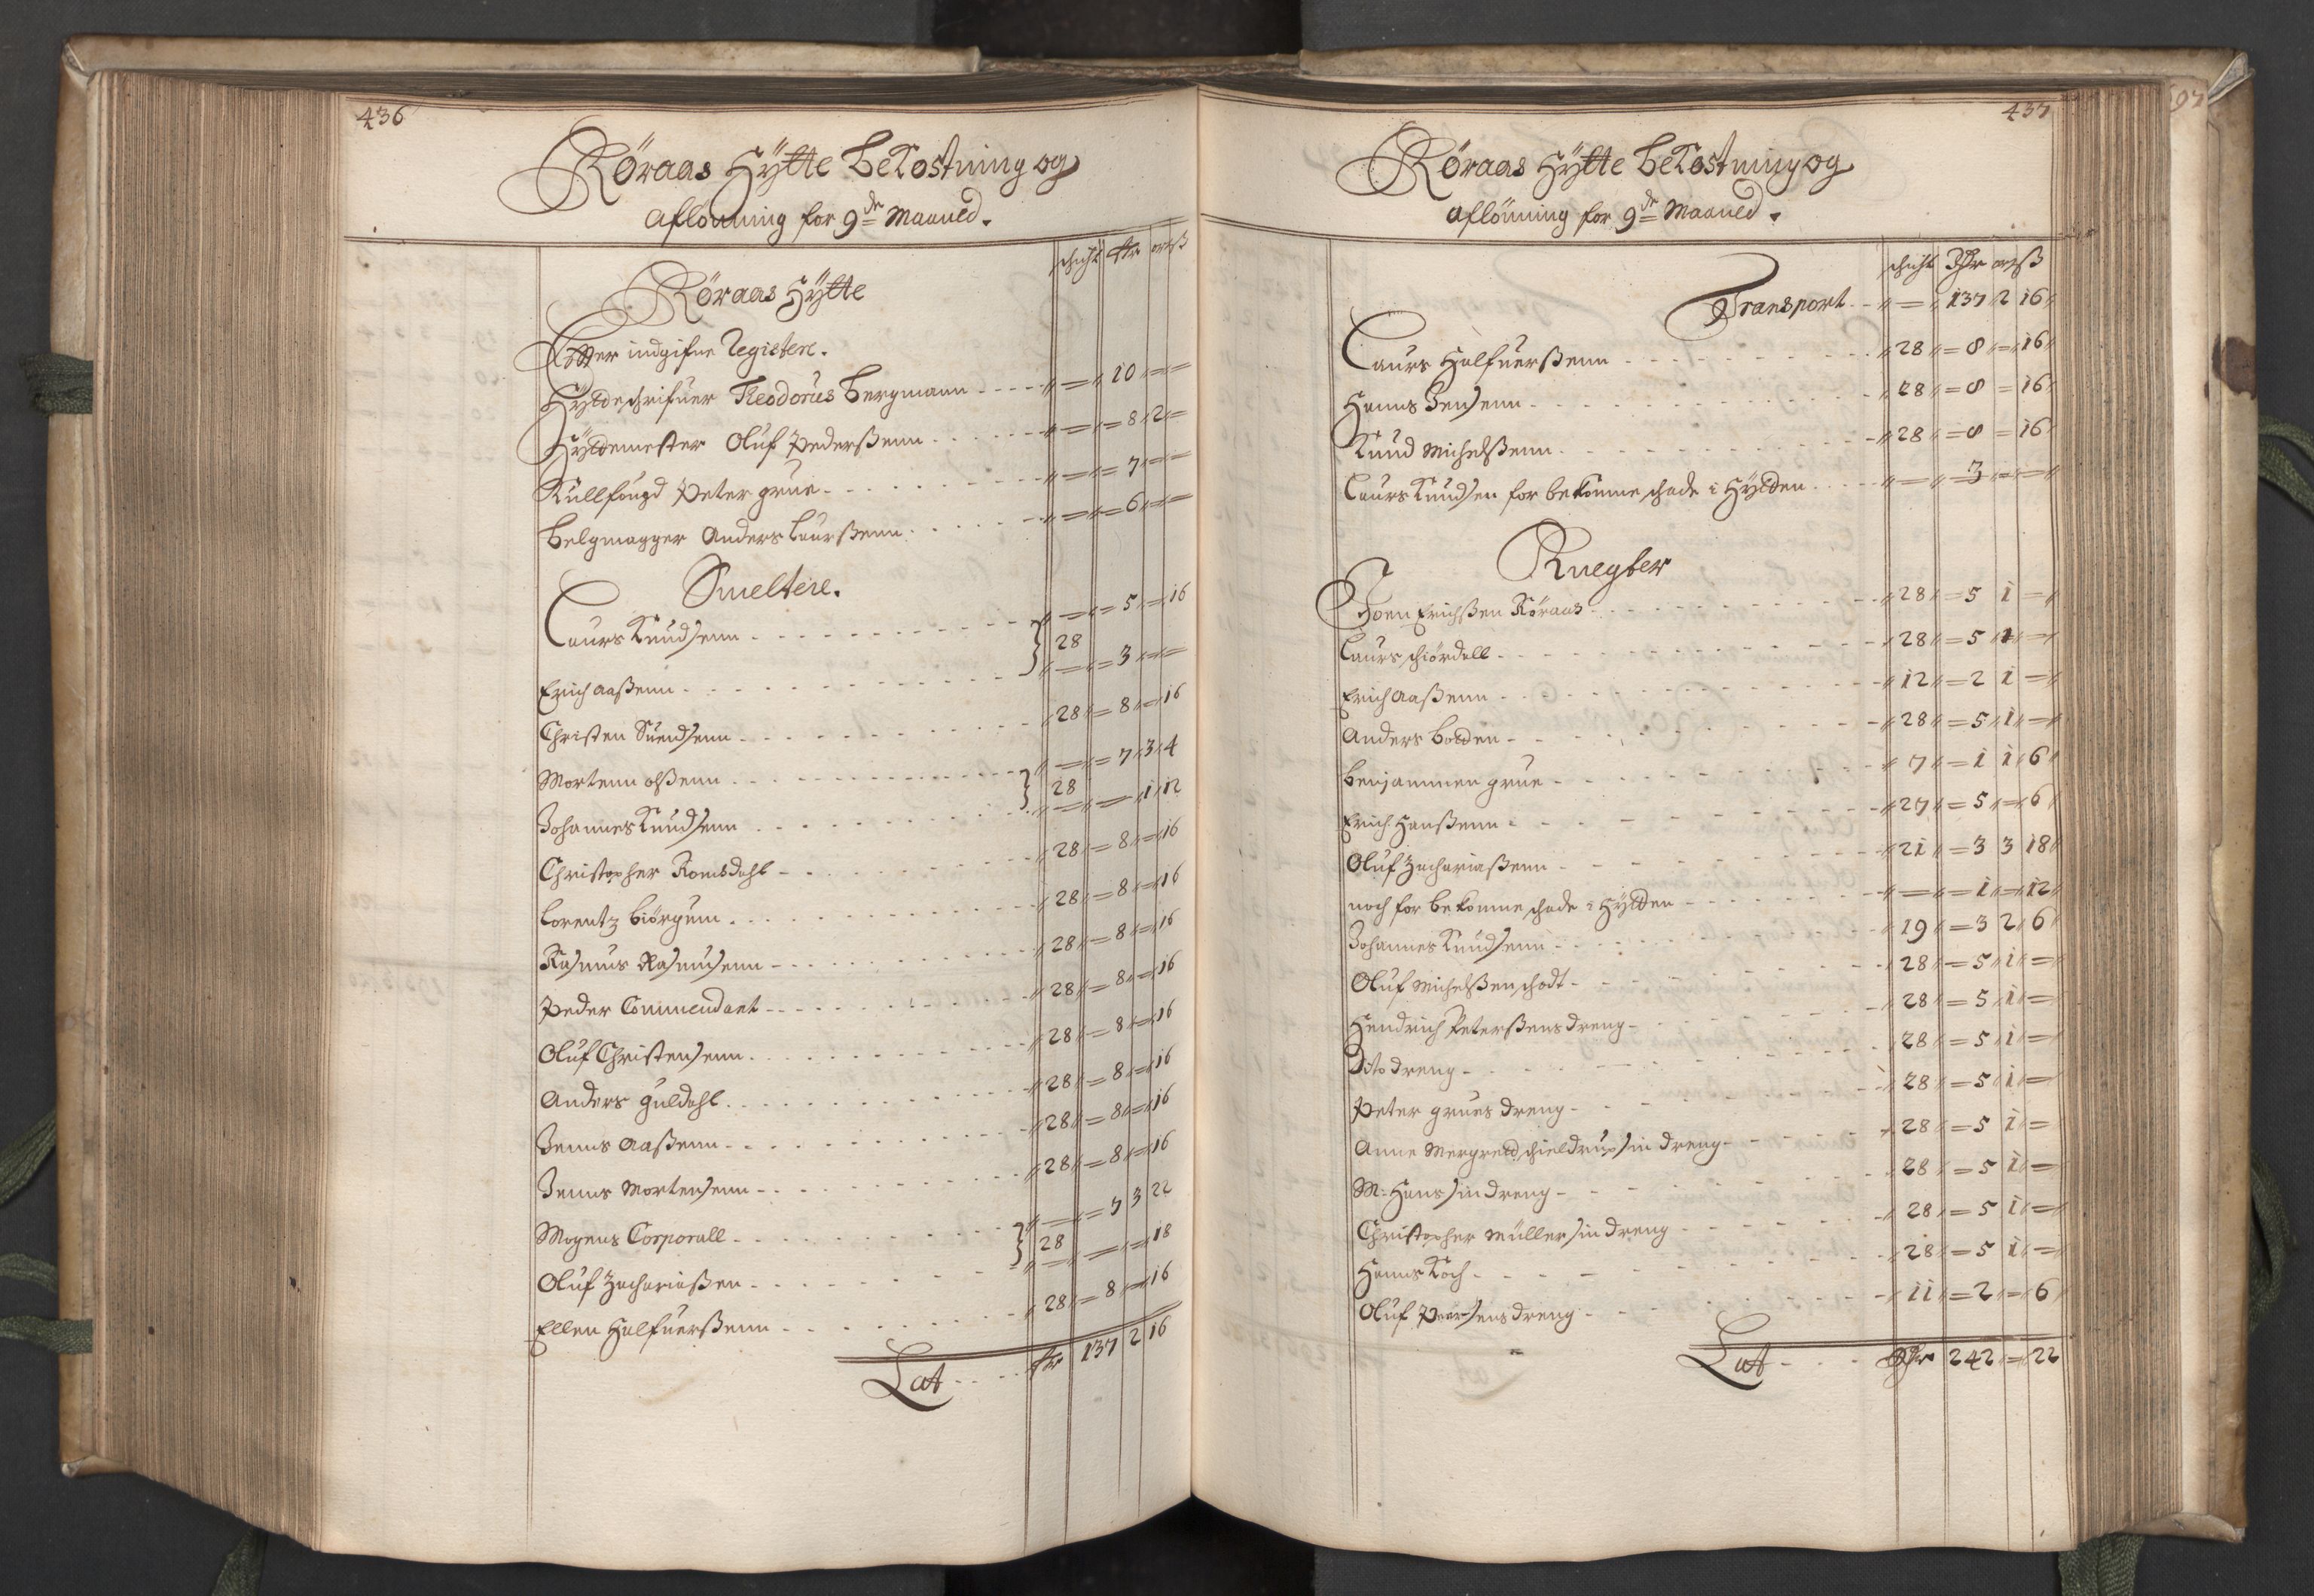 436
Røraas Hÿtte beKostning og
aflönning for 9de Maaned.
schicht dlr ort ß
Røraas Hÿtte
Effter indgifne Registere.
Hÿtteschrifuer Theodorus Bergmann - - - - 10
Hÿttemester Oluf Pederßenn - - - - 8 2
Kullfougd Peter grue - - - - 7
Belgmagger Anders Laurßenn - - - - 6
Smeltere.
Laurs Knudsenn - - - - 28 5 = 16
Erich Aaßenn - - - - 3
Christen Suendsenn - - - - 28 = 8 = 16
Mortenn olßenn - - - - 28 7 3 4
Johannes Knudsenn - - - - 1 12
Christopher Romsdahl - - - - 28 = 8 = 16
Lorentz biörgum - - - - 28 = 8 = 16
Rasmus Rasmusenn - - - - 28 = 8 = 16
Peder Commendant - - - - 28 = 8 = 16
Oluf Christensenn - - - - 28 = 8 = 16
Anders guldahl - - - - 28 = 8 = 16
Jenns Aaßenn - - - - 28 = 8 = 16
Jenns Mortensenn - - - - 28 = 8 = 16
Mogens Corporall - - - - 28 7 3 22
Oluf Zachariaßen - - - - 18
Ellen Halfuerßenn - - - - 28 = 8 = 16
Lat - - - - dlr 137 2 16
437
Røraas Hÿtte beKostning og
aflönning for 9de Maaned.
schicht Dlr ort ß
Transport - - 137 2 16
Laurs Halfuerßenn - - - - 28 = 8 = 16
Hanns Jensenn - - - - 28 = 8 = 16
Knud Michelßenn - - - - 28 = 8 = 16
Laurs Knudsen for bekomme schade i Hÿtten - - - - 3
Knegter
Joen Erichßen Röraas - - - - 28 = 5 1 =
Laurs schiördall - - - - 28 = 5 1 =
Erich Aaßenn - - - - 12 = 2 1 =
Anders botten - - - - 28 = 5 1 =
Benjammen grue - - - - 7 = 1 1 6
Erich Hanßenn - - - - 27 = 5 = 6
Oluf Zachariaßenn - - - - 21 = 3 3 18
noch for bekomme schade i Hÿtten - - - - 1 = 12
Johannes Knudsenn - - - - 19 = 3 2 6
Oluf Michelßen schodt - - - - 28 = 5 1 =
Hendrich Peterßens dreng - - - - 28 = 5 1 =
Dito dreng - - - - 28 = 5 1 =
Peter grues dreng - - - - 28 = 5 1 =
Anne Mergrett schieldrup sin dreng - - - - 28 = 5 1 =
M: Hans sin dreng - - - - 28 = 5 1 =
Christopher Müller sin dreng - - - - 28 = 5 1 =
Hanns Koch - - - - 28 = 5 1 =
Oluf Peersens dreng - - - - 11 = 2 = 6
Lat - - - Dlr 242 = 22